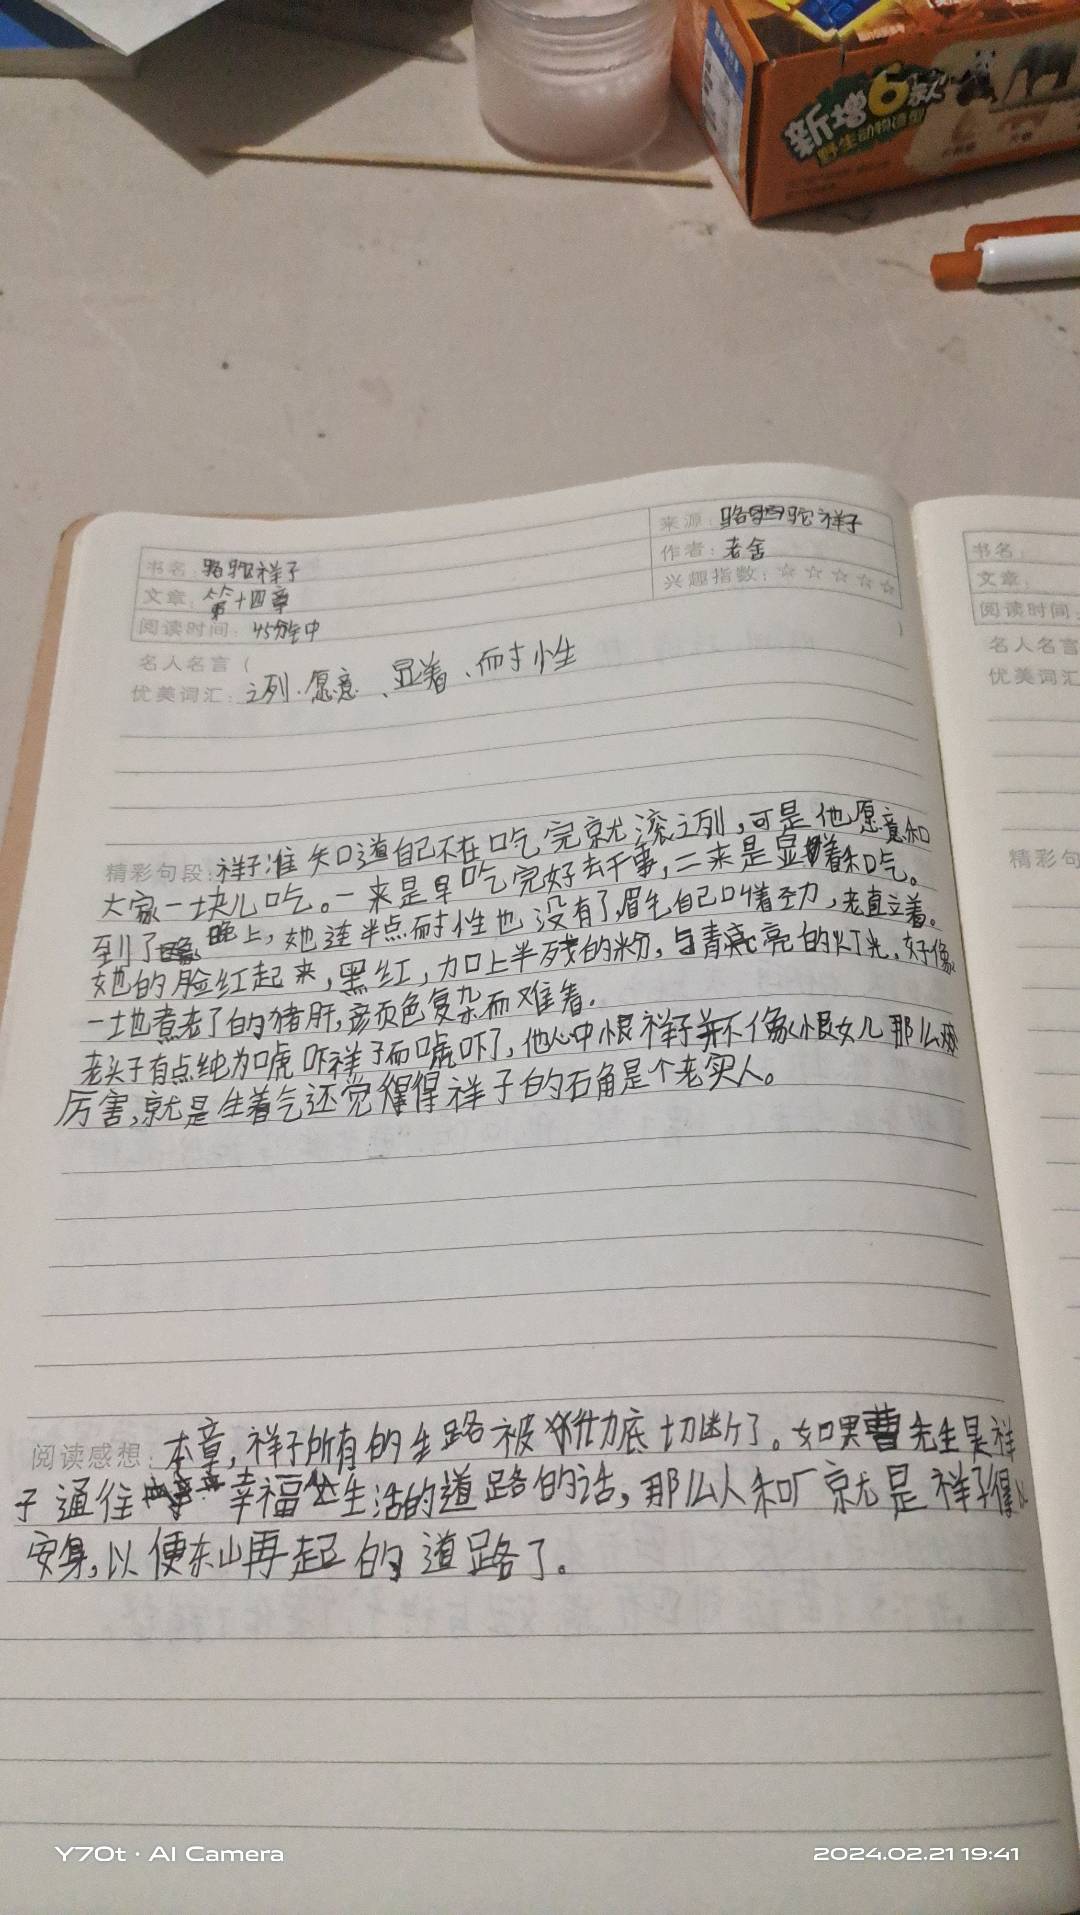 新增6款
野生动物造型
书名：骆驼祥子
来源：骆驼祥子
文章：第十四章
作者：老舍
阅读时间：45分钟
兴趣指数：☆☆☆☆☆
名人名言（ ）
优美词汇：之列、愿意、显着、耐性
精彩句段：祥子准知道自己不在吃完就滚之列，可是他愿意和
大家一块儿吃。一来是早吃完好去干事，二来是显着和气。
到了晚上，她连半点耐性也没有了，眉毛自己叫着劲，老直立着。
她的脸红起来，黑红，加上半残的粉，与青亮的灯光，好像
一块煮老了的猪肝，颜色复杂而难看。
老头子有点纯为唬吓祥子而唬吓了，他心中恨祥子并不像恨女儿那么
厉害，就是生着气还觉得祥子的确是个老实人。
阅读感想：本章，祥子所有的生路被彻底切断了。如果曹先生是祥
子通往幸福生活的道路的话，那么人和厂就是祥子得以
安身，以便东山再起的道路了。
书名：
文章：
阅读时间：
名人名言
优美词汇
精彩句
Y70t · AI Camera
2024.02.21 19:41